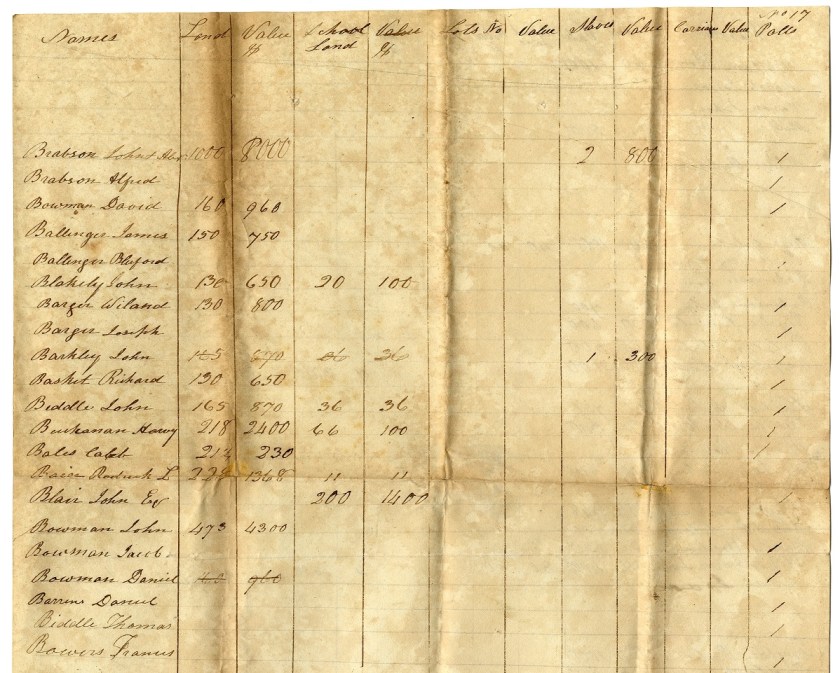 No 17
Names Land Value $ School Land Value $ Lots No Value Slaves Value Carriage Value Polls
Brabson John & 1000 8000 2 800 1
Brabson Alfred 1
Bowman David 160 960 1
Ballinger James 150 750
Ballinger Bluford
Blakely John 130 650 20 100
Barger Wiland 130 800 1
Barger Joseph 1
Barkley John 165 870 36 36 1 300 1
Basket Richard 130 650 1
Biddle John 165 870 36 36 1
Buckanan Harvy 218 2400 66 100 1
Bales Caleb 212 230 1
Roderick L 228 1368 " "
Blair John Esq 200 1400 1
Bowman John 473 4300
Bowman Jacob 1
Bowman Daniel 160 960 1
Barrens Daniel
Biddle Thomas 1
Bowers Francis 1